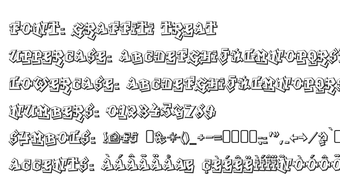 FONT: GRAFFITI TREAT
UPPERCASE: ABCDEFGHIJKLMNOPQRS
LOWERCASE: ABCDEFGHIJKLMNOPQRS
NUMBERS: 0123456789
SYMBOLS:
ACCENTS: ÀÁÂÃÄÅÆ ÇÈÉÊËÌÍÎÏÑÒÓÔÕÖ